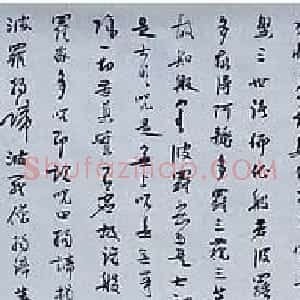 槃三世諸佛依般若波羅
多故得阿耨多羅三藐三菩
故知般若波羅蜜多是大神
是大明咒是無上咒是無等
除一切苦真實不虛故說般
羅蜜多咒即說咒曰揭諦揭
波羅揭諦波羅僧揭諦菩